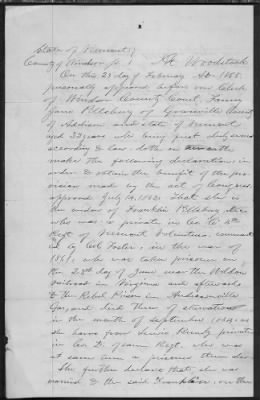 State of Vermont }
County of Windsor ss. } At Woodstock
On this 23 day of February A.D. 1865
personally appeared before me Clerk
of Windsor County Court, Fanny
Jane Pillsbury of Granville County
of Addison and state of Vermont
aged 33 years who being first duly sworn
according to law, doth on oath
make the following declaration, in
order to obtain the benefit of the pro-
vision made by the act of Congress
approved July 14, 1862: That she is
the widow of Franklin Pillsbury
who was a private in Co.
Regt of Vermont Volunteers, command-
ed by Col Foster, in the war of
1861, who was taken prisoner on
the 23d day of June near the Weldon
railroad in Virginia and afterwards
to the Rebel Prison in Andersonville
Geo, and died there of starvation
in the month of September 1864, as
she learns from Lewis
in Co. D. of same Regt. who was
at same time a prisoner there
She further declares that she was
married to the said Franklin, on the